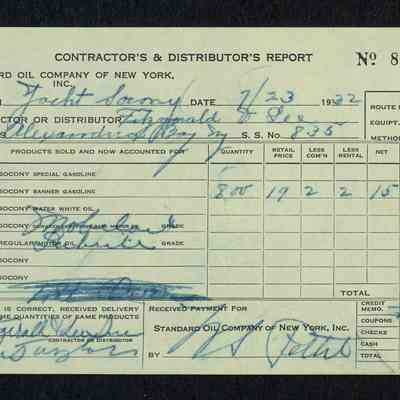 CONTRACTOR'S & DISTRIBUTOR'S REPORT Nº 8
RD OIL COMPANY OF NEW YORK,
INC.
Yacht Socony DATE 7/23 1932
ROUTE
CTOR OR DISTRIBUTOR Fitzgerald & Lee
EQUIPT.
Alexandria Bay NY S. S. No. 835
METHOD
PRODUCTS SOLD AND NOW ACCOUNTED FOR QUANTITY RETAIL PRICE LESS COM'N LESS RENTAL NET
SOCONY SPECIAL GASOLINE
SOCONY BANNER GASOLINE 800 19 2 2 15
WATER WHITE OIL
SOCONY GRADE
REGULAR GRADE
SOCONY
SOCONY
TOTAL
IS CORRECT, RECEIVED DELIVERY
E QUANTITIES OF SAME PRODUCTS
CONTRACTOR OR DISTRIBUTOR
RECEIVED PAYMENT FOR
STANDARD OIL COMPANY OF NEW YORK, INC.
BY
CREDIT MEMO.
COUPONS
CHECKS
CASH
TOTAL